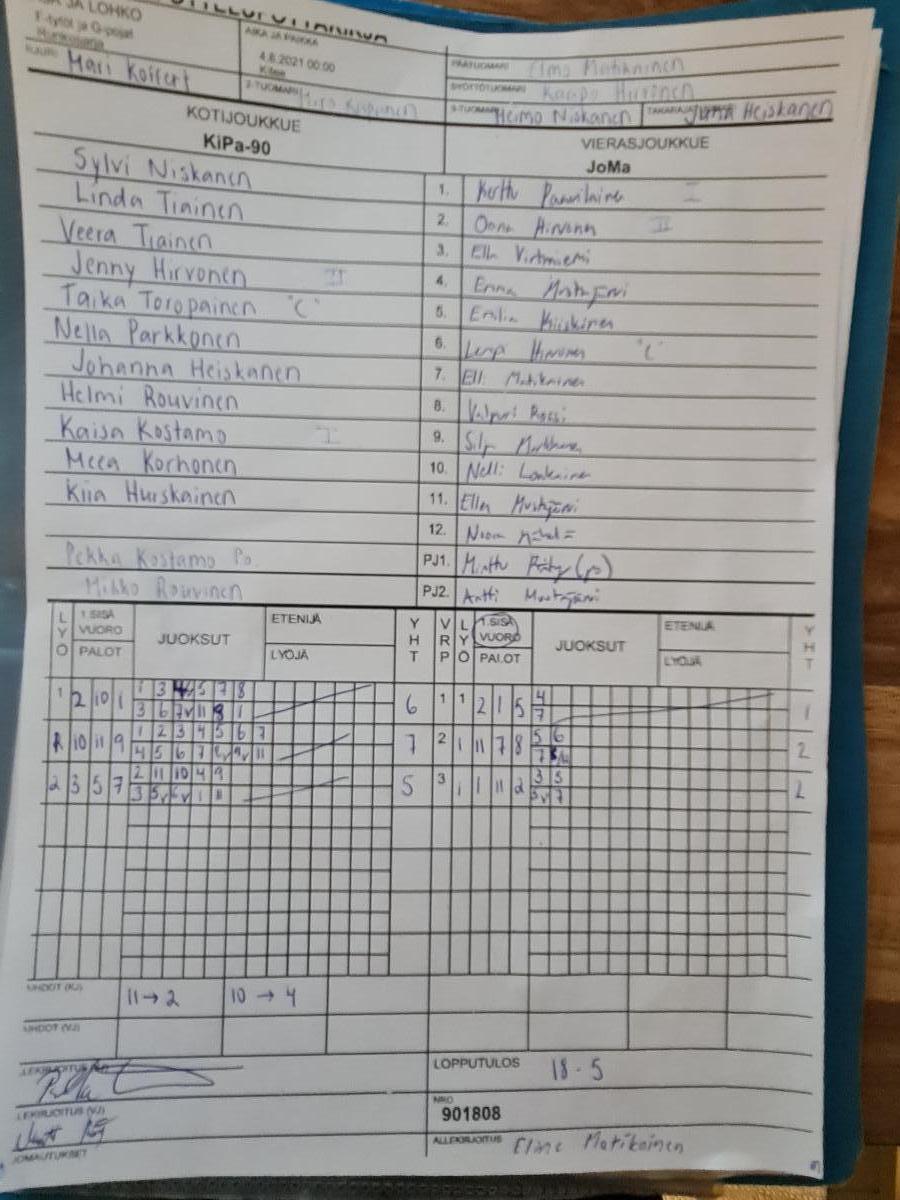 JA LOHKO
F-tytöt ja G-pojat
AIKA JA PAIKKA
4.6.2021 00:00
Kitee
Mari Koffert
2-TUOMARI
PÄÄTUOMARI Elmo Matikainen
SYÖTTÖTUOMARI Kaapo Hirvonen
3-TUOMARI Heimo Niskanen TAKARAJA Juha Heiskanen
KOTIJOUKKUE
KiPa-90
VIERASJOUKKUE
JoMa
Sylvi Niskanen 1. Kerttu Pannilainen I
Linda Tiainen 2. Oona Hirvonen II
Veera Tiainen 3. Ella Virtaniemi
Jenny Hirvonen II 4. Emma Mustajärvi
Taika Toropainen "C" 5. Emilia Kiiskinen
Nella Parkkonen 6. Hirvonen "C"
Johanna Heiskanen 7. Elli Matikainen
Helmi Rouvinen 8. Valpuri Rossi
Kaisa Kostamo I 9.
Meea Korhonen 10. Nelli
Kiia Hurskainen 11. Ella Mustajärvi
12. Noora
Pekka Kostamo Po. PJ1. Minttu Räty (po)
Mikko Rouvinen PJ2. Antti Mustajärvi
LYÖ 1.SISÄVUORO PALOT JUOKSUT ETENIJÄ LYÖJÄ YHT VRP LYÖ 1.SISÄVUORO PALOT JUOKSUT ETENIJÄ LYÖJÄ YHT
1 2 10 1 1 3 4 5 7 8 6 1 1 2 1 5 4 1
3 6 7v 11 8 1 7
R 10 11 9 1 2 3 4 5 6 7 7 2 1 11 7 8 5 6 2
4 5 6 7 8v 9v 11 7
2 3 5 7 2 11 10 4 9 5 3 1 1 11 2 3 5 2
3 5v 6v 1 11 3v 7
VAIHDOT (KJ) 11→2 10→4
VAIHDOT (VJ)
ALLEKIRJOITUS (KJ)
LOPPUTULOS 18-5
ALLEKIRJOITUS (VJ)
NRO
901808
HUOMAUTUKSET
ALLEKIRJOITUS Elmo Matikainen